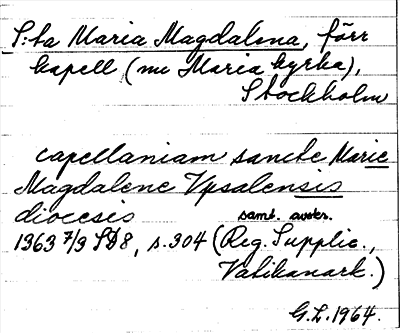 S:ta Maria Magdalena, förr
kapell (nu Maria kyrka),
Stockholm
capellaniam sancte Marie
Magdalene Vpsalensis
diocesis samt. avskr.
1363 7/9 SD8, s. 304 (Reg. Supplic.,
Vatikanark.)
G.L. 1964.